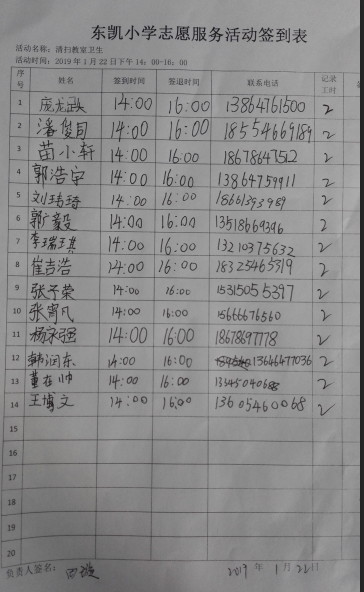 东凯小学志愿服务活动签到表
活动名称：清扫教室卫生
活动时间：2019年1月22日下午14：00-16：00
序号 姓名 签到时间 签退时间 联系电话 记录工时
1 庞龙政 14:00 16:00 13864761500 2
2 潘俊同 14:00 16:00 18554669189 2
3 苗小轩 14:00 16:00 18678647512 2
4 郭浩宇 14:00 16:00 13864759911 2
5 刘琦琦 14:00 16:00 2
6 郭广毅 14:00 16:00 13518669396 2
7 李瑞琪 14:00 16:00 13210375632 2
8 崔吉浩 14:00 16:00 18325465319 2
9 张予荣 14:00 16:00 15315055397 2
10 张宵凡 14:00 16:00 15666676560 2
11 杨永强 14:00 16:00 18678697778 2
12 韩润东 14:00 16:00 13646477036 2
13 董在帅 14:00 16:00 13345040688 2
14 王博文 14:00 16:00 13605460068 2
15
16
17
18
19
20
负责人签名： 2019 年 1 月 22 日